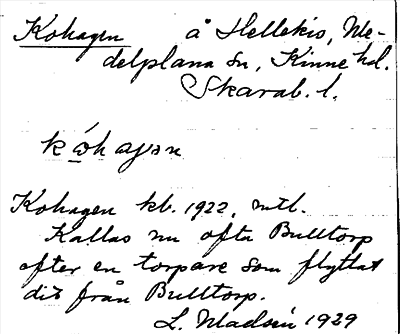 Kohagen å Hellekis, Me-
delplana sn, Kinne hd.
Skarab. l.
kωhagən
Kohagen kb. 1922, mtl.
Kallas nu ofta Bulltorp
efter en torpare som flyttat
dit från Bulltorp.
L. Madsén 1929